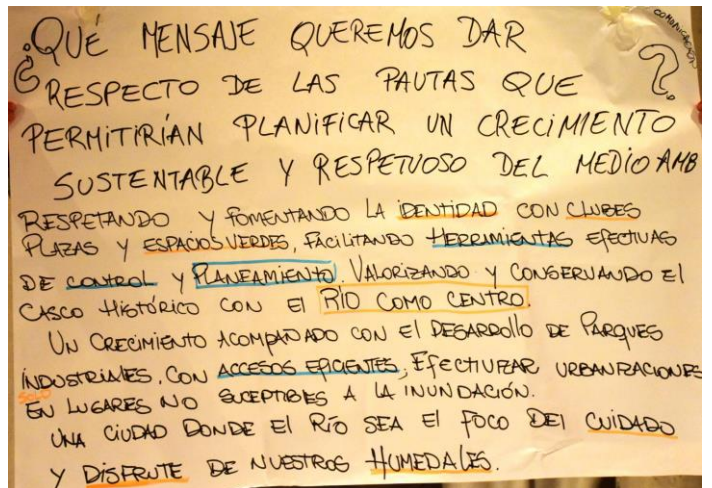 COMUNICACIÓN
¿QUE MENSAJE QUEREMOS DAR
RESPECTO DE LAS PAUTAS QUE ?
PERMITIRÍAN PLANIFICAR UN CRECIMIENTO
SUSTENTABLE Y RESPETUOSO DEL MEDIO AMB
RESPETANDO Y FOMENTANDO LA IDENTIDAD CON CLUBES
PLAZAS Y ESPACIOS VERDES, FACILITANDO HERRAMIENTAS EFECTIVAS
DE CONTROL Y PLANEAMIENTO. VALORIZANDO Y CONSERVANDO El
CASCO HISTÓRICO CON El RÍO COMO CENTRO.
UN CRECIMIENTO ACOMPAÑADO CON El DESARROllO DE PARQUES
INDUSTRIALES, CON ACCESOS EFICIENTES, EFECTIVIZAR URBANIZACIONES
SOLO EN LUGARES NO SUCEPTIBLES A LA INUNDACIÓN.
UNA CIUDAD DONDE El RÍO SEA El FOCO DEl CUIDADO
Y DISFRUTE DE NUESTROS HUMEDALES.